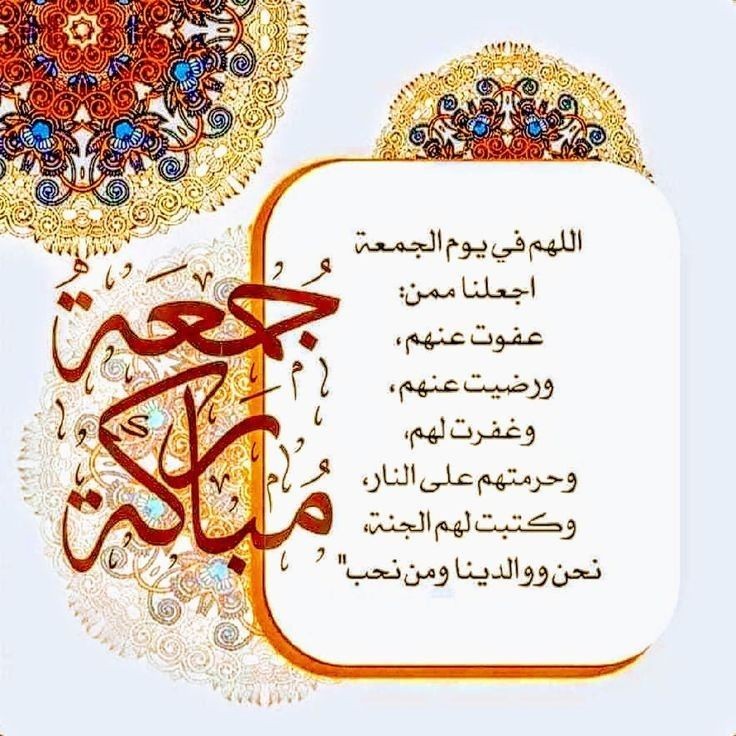 جُمُعَةُ
مُبَارَكَة
اللهم في يوم الجمعة
اجعلنا ممن:
عفوت عنهم،
ورضيت عنهم،
وغفرت لهم،
وحرمتهم على النار،
وكتبت لهم الجنة،
نحن ووالدينا ومن نحب"